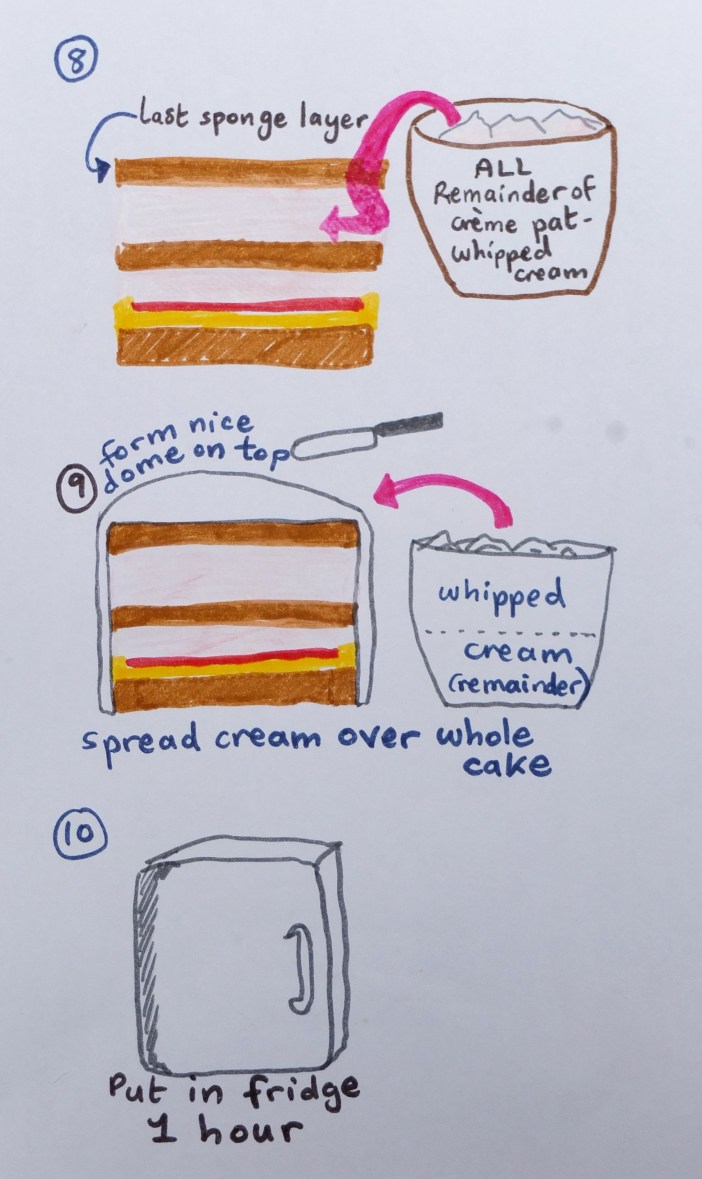 8
Last sponge layer
ALL
Remainder of
crème pat-
whipped
cream
form nice
dome on top
9
whipped
cream
(remainder)
spread cream over whole
cake
10
Put in fridge
1 hour